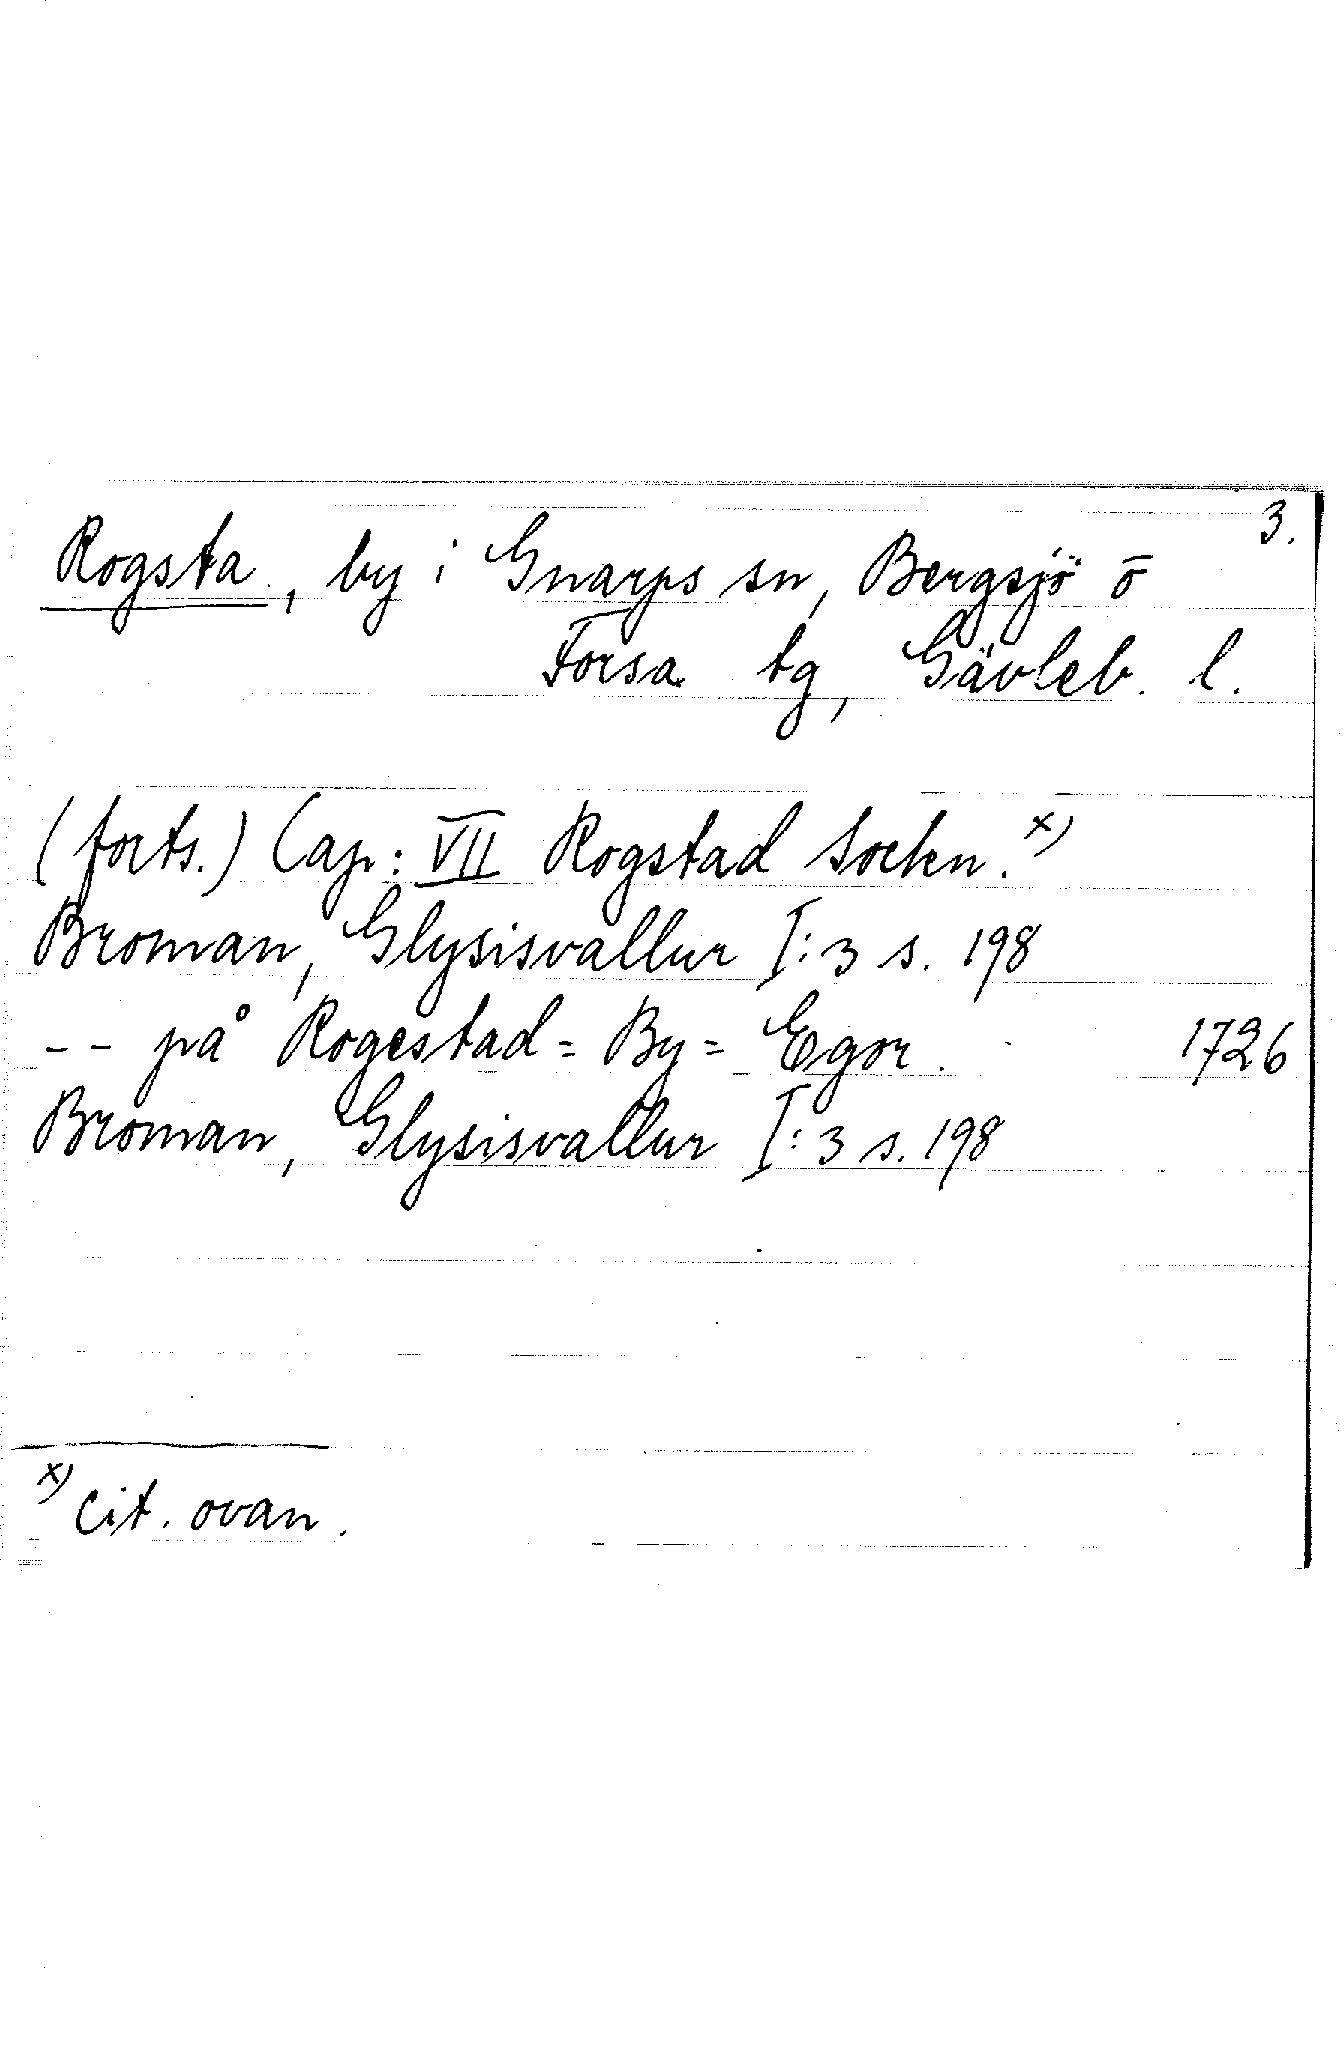 3.
Rogsta, by i Gnarps sn, Bergsjö o
Forsa tg, Gävleb. l.
(forts.) Cap: VII Rogstad Sochn. x)
Broman, Glysisvallur I:3 s. 198
-- på Rogestad= By= Egor. 1726
Broman, Glysisvallur I:3 s. 198
x) Cit. ovan.